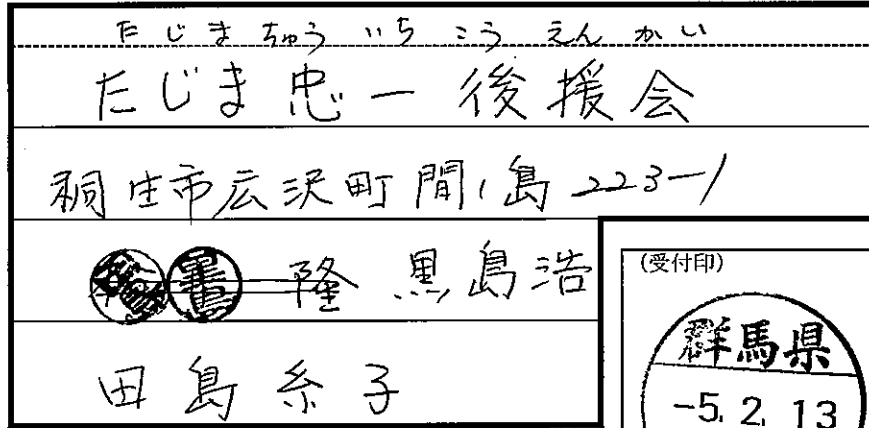 たじまちゅういちこうえんかい
たじま忠一後援会
桐生市広沢町間ノ島223-1
隆 黒島浩
田島糸子
(受付印)
群馬県
-5.2.13